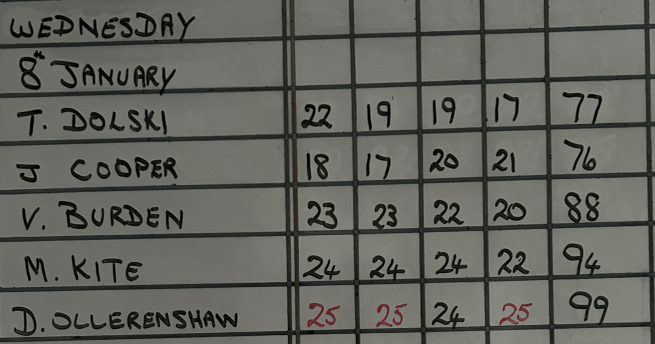 WEDNESDAY
8th JANUARY
T. DOLSKI 22 19 19 17 77
J COOPER 18 17 20 21 76
V. BURDEN 23 23 22 20 88
M. KITE 24 24 24 22 94
D. OLLERENSHAW 25 25 24 25 99